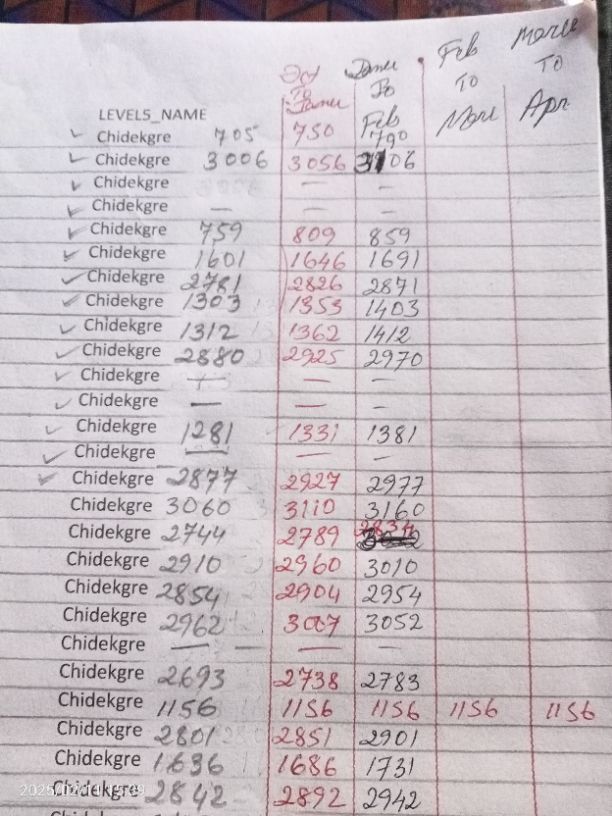 Oct Janu Feb March
To To To To
Janu Feb Apr
LEVEL5_NAME
Chidekgre 705 750 790
Chidekgre 3006 3056 3106
Chidekgre — —
Chidekgre — — —
Chidekgre 759 809 859
Chidekgre 1601 1646 1691
Chidekgre 2781 2826 2871
Chidekgre 1303 1353 1403
Chidekgre 1312 1362 1412
Chidekgre 2880 2925 2970
Chidekgre — — —
Chidekgre — — —
Chidekgre 1281 1331 1381
Chidekgre — — —
Chidekgre 2877 2927 2977
Chidekgre 3060 3110 3160
Chidekgre 2744 2789 2834
Chidekgre 2910 2960 3010
Chidekgre 2854 2904 2954
Chidekgre 2962 3007 3052
Chidekgre — — — —
Chidekgre 2693 2738 2783
Chidekgre 1156 1156 1156 1156 1156
Chidekgre 2801 2851 2901
Chidekgre 1636 1686 1731
Chidekgre 2842 2892 2942